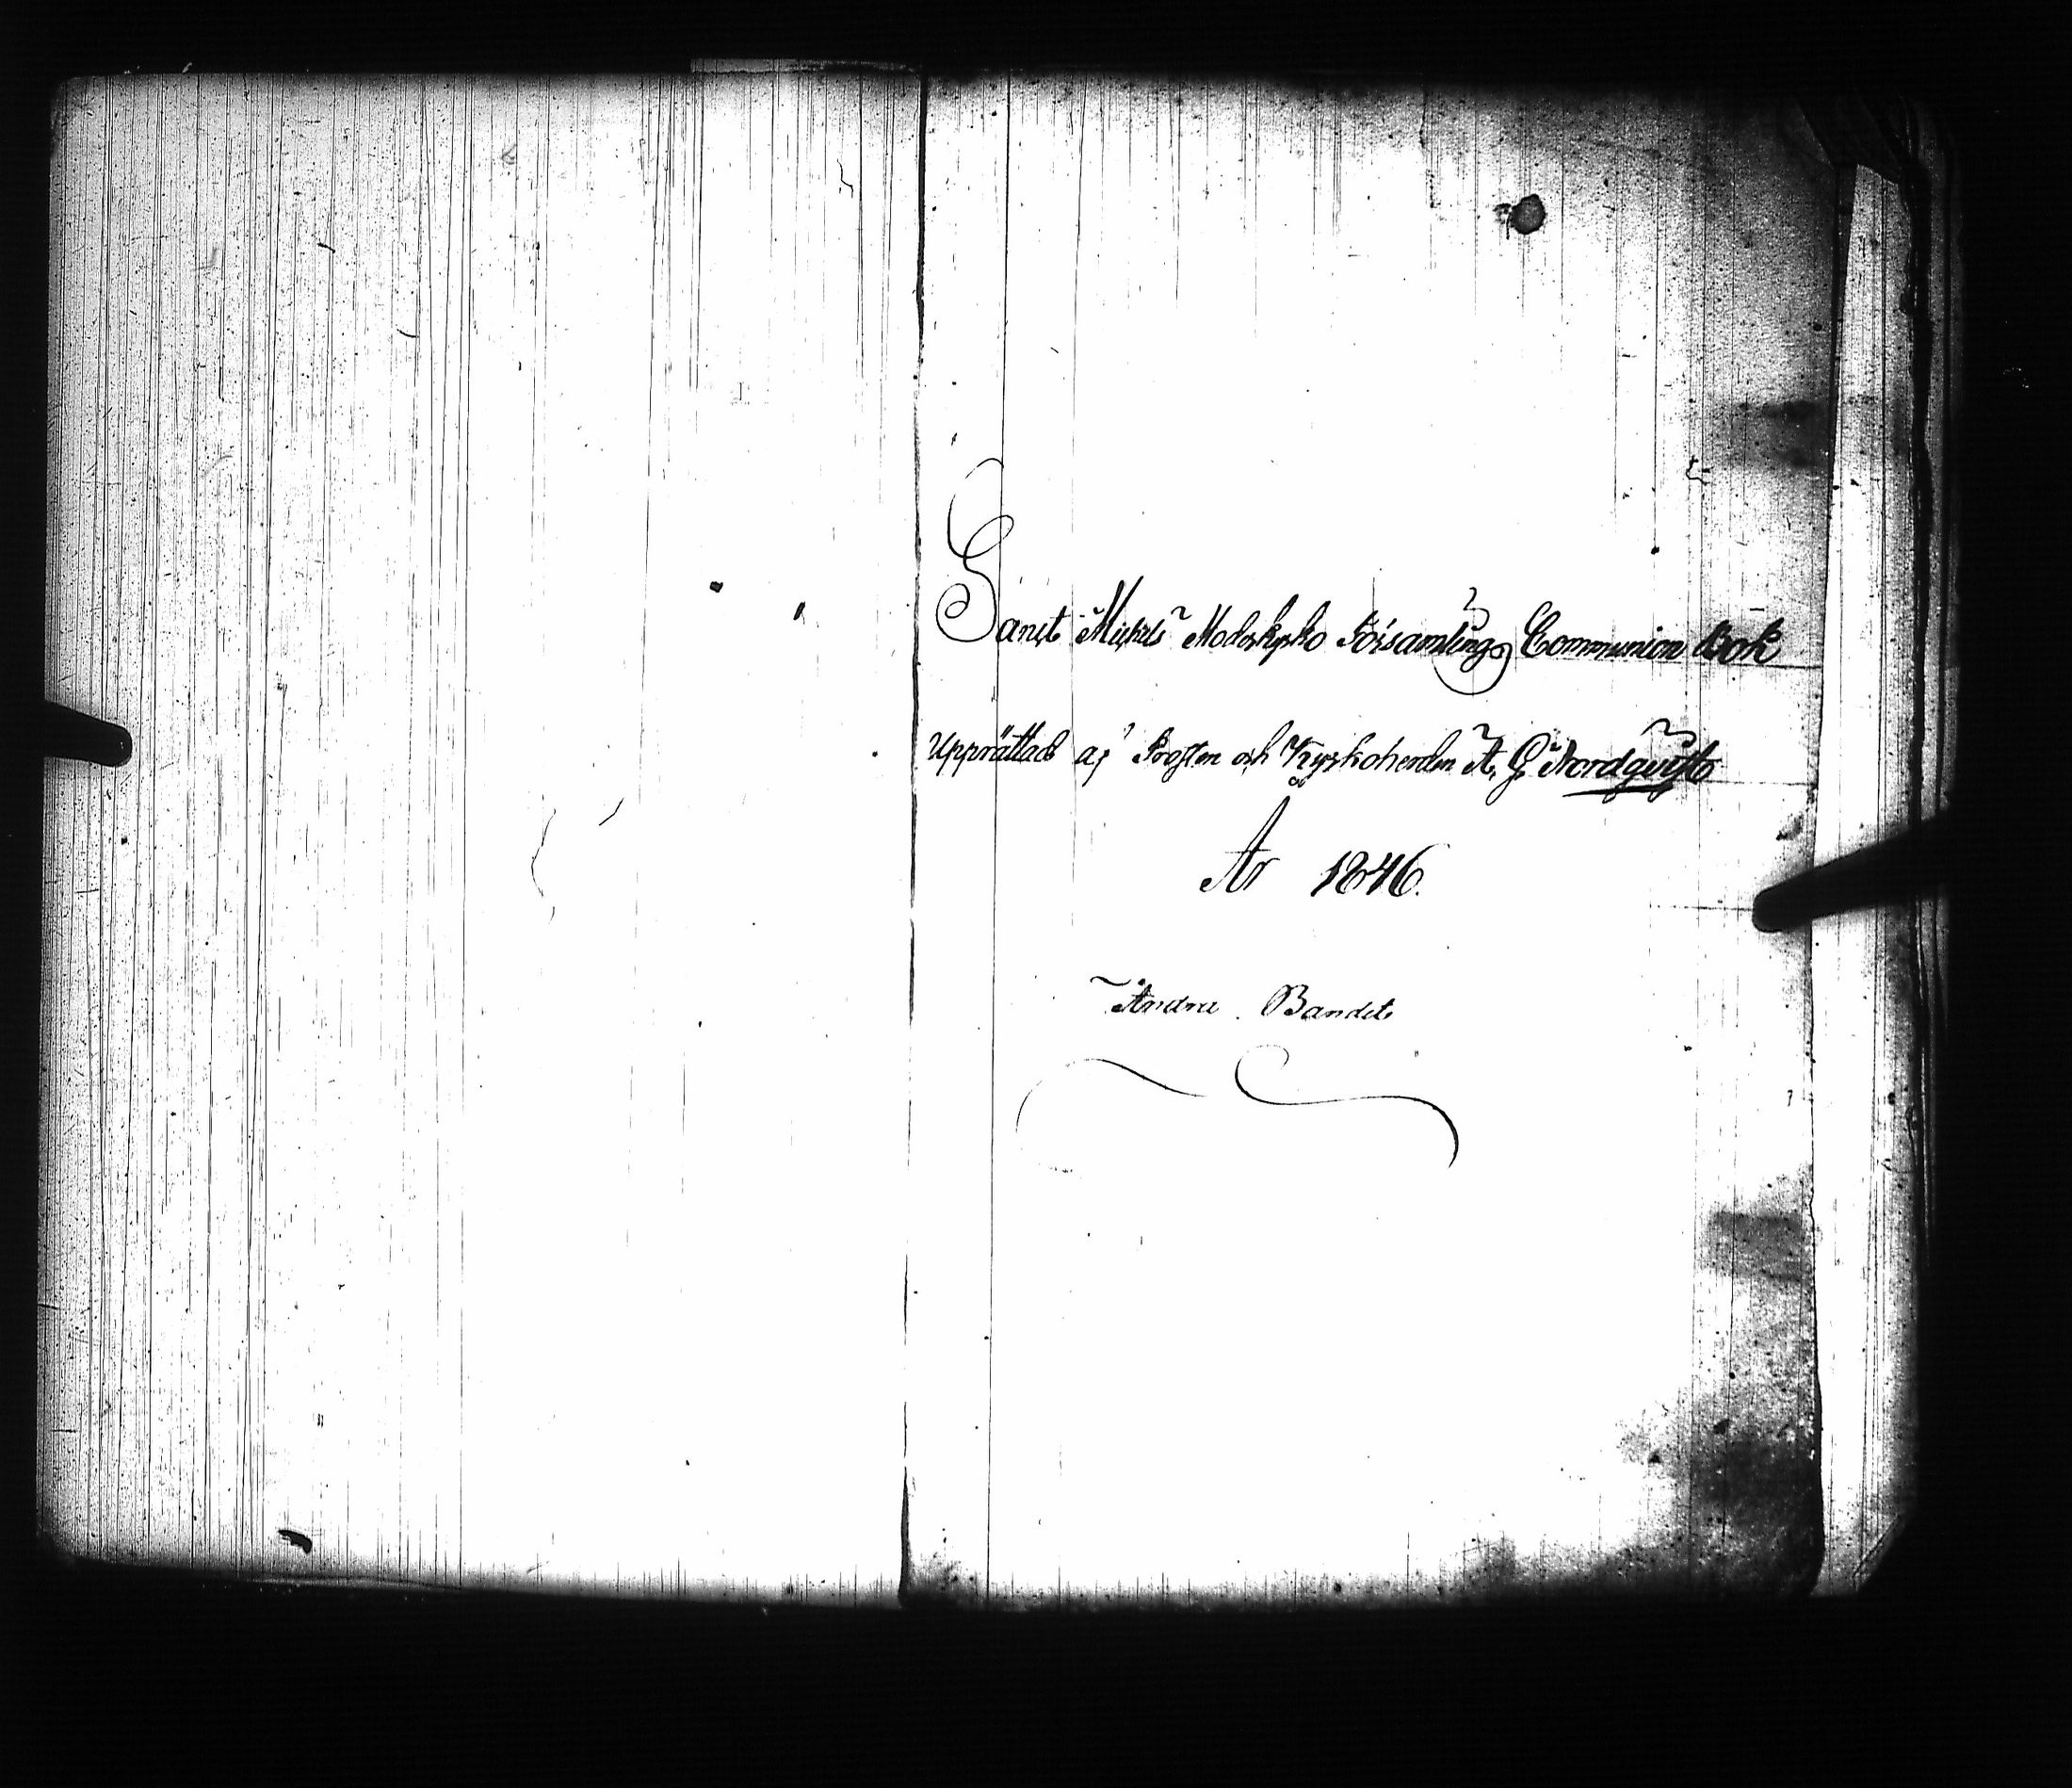 Sanct Michels Moderkyrko Församlings Communion Bok
Upprättad af Prosten och Kyrkoherden A. G. Nordqvist
År 1846.
Andra Bandet